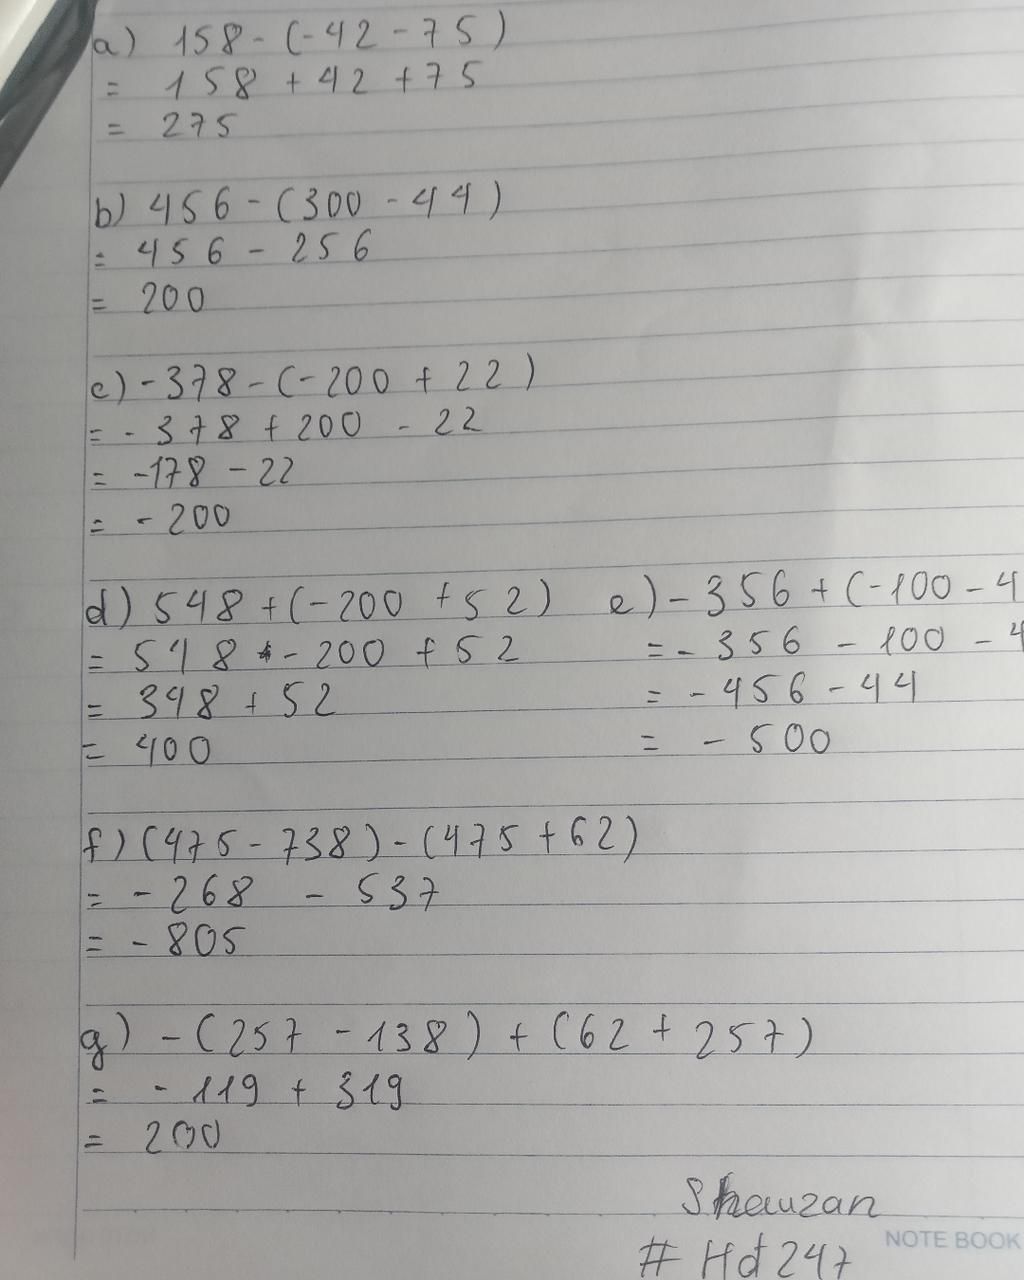 a) 158 - (-42 - 75)
= 158 + 42 + 75
= 275
b) 456 - (300 - 44)
= 456 - 256
= 200
c) -378 - (-200 + 22)
= - 378 + 200 - 22
= -178 - 22
= - 200
d) 548 + (-200 + 52)
= 548 - 200 + 52
= 348 + 52
= 400
e) - 356 + (-100 - 4
= - 356 - 100 - 4
= - 456 - 44
= - 500
f) (475 - 738) - (475 + 62)
= - 268 - 537
= - 805
g) - (257 - 138) + (62 + 257)
= - 119 + 319
= 200
# Hd247
NOTE BOOK